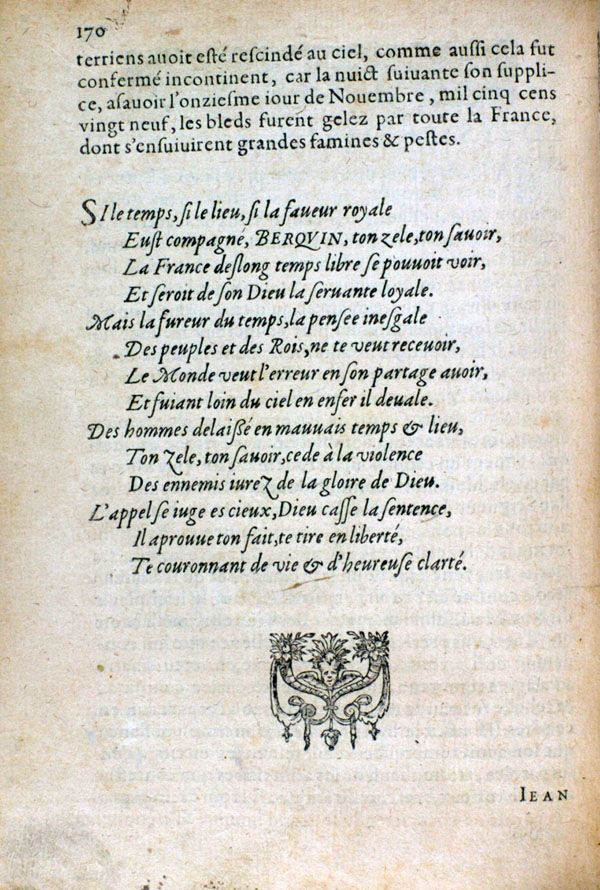 170
terriens auoit esté rescindé au ciel, comme aussi cela fut
confermé incontinent, car la nuict suiuante son suppli-
ce, asauoir l'onziesme iour de Nouembre, mil cinq cens
vingt neuf, les bleds furent gelez par toute la France,
dont s'ensuiuirent grandes famines & pestes.
SI le temps, si le lieu, si la faueur royale
Eust compagné, BERQVIN, ton zele, ton sauoir,
La France deslong temps libre se pouuoit voir,
Et seroit de son Dieu la seruante loyale.
Mais la fureur du temps, la pensee inesgale
Des peuples et des Rois, ne te veut receuoir,
Le Monde veut l'erreur en son partage auoir,
Et fuiant loin du ciel en enfer il deuale.
Des hommes delaißé en mauuais temps & lieu,
Ton zele, ton sauoir, cede à la violence
Des ennemis iurez de la gloire de Dieu.
L'appel se iuge es cieux, Dieu casse la sentence,
Il aprouue ton fait, te tire en liberté,
Te couronnant de vie & d'heureuse clarté.
IEAN